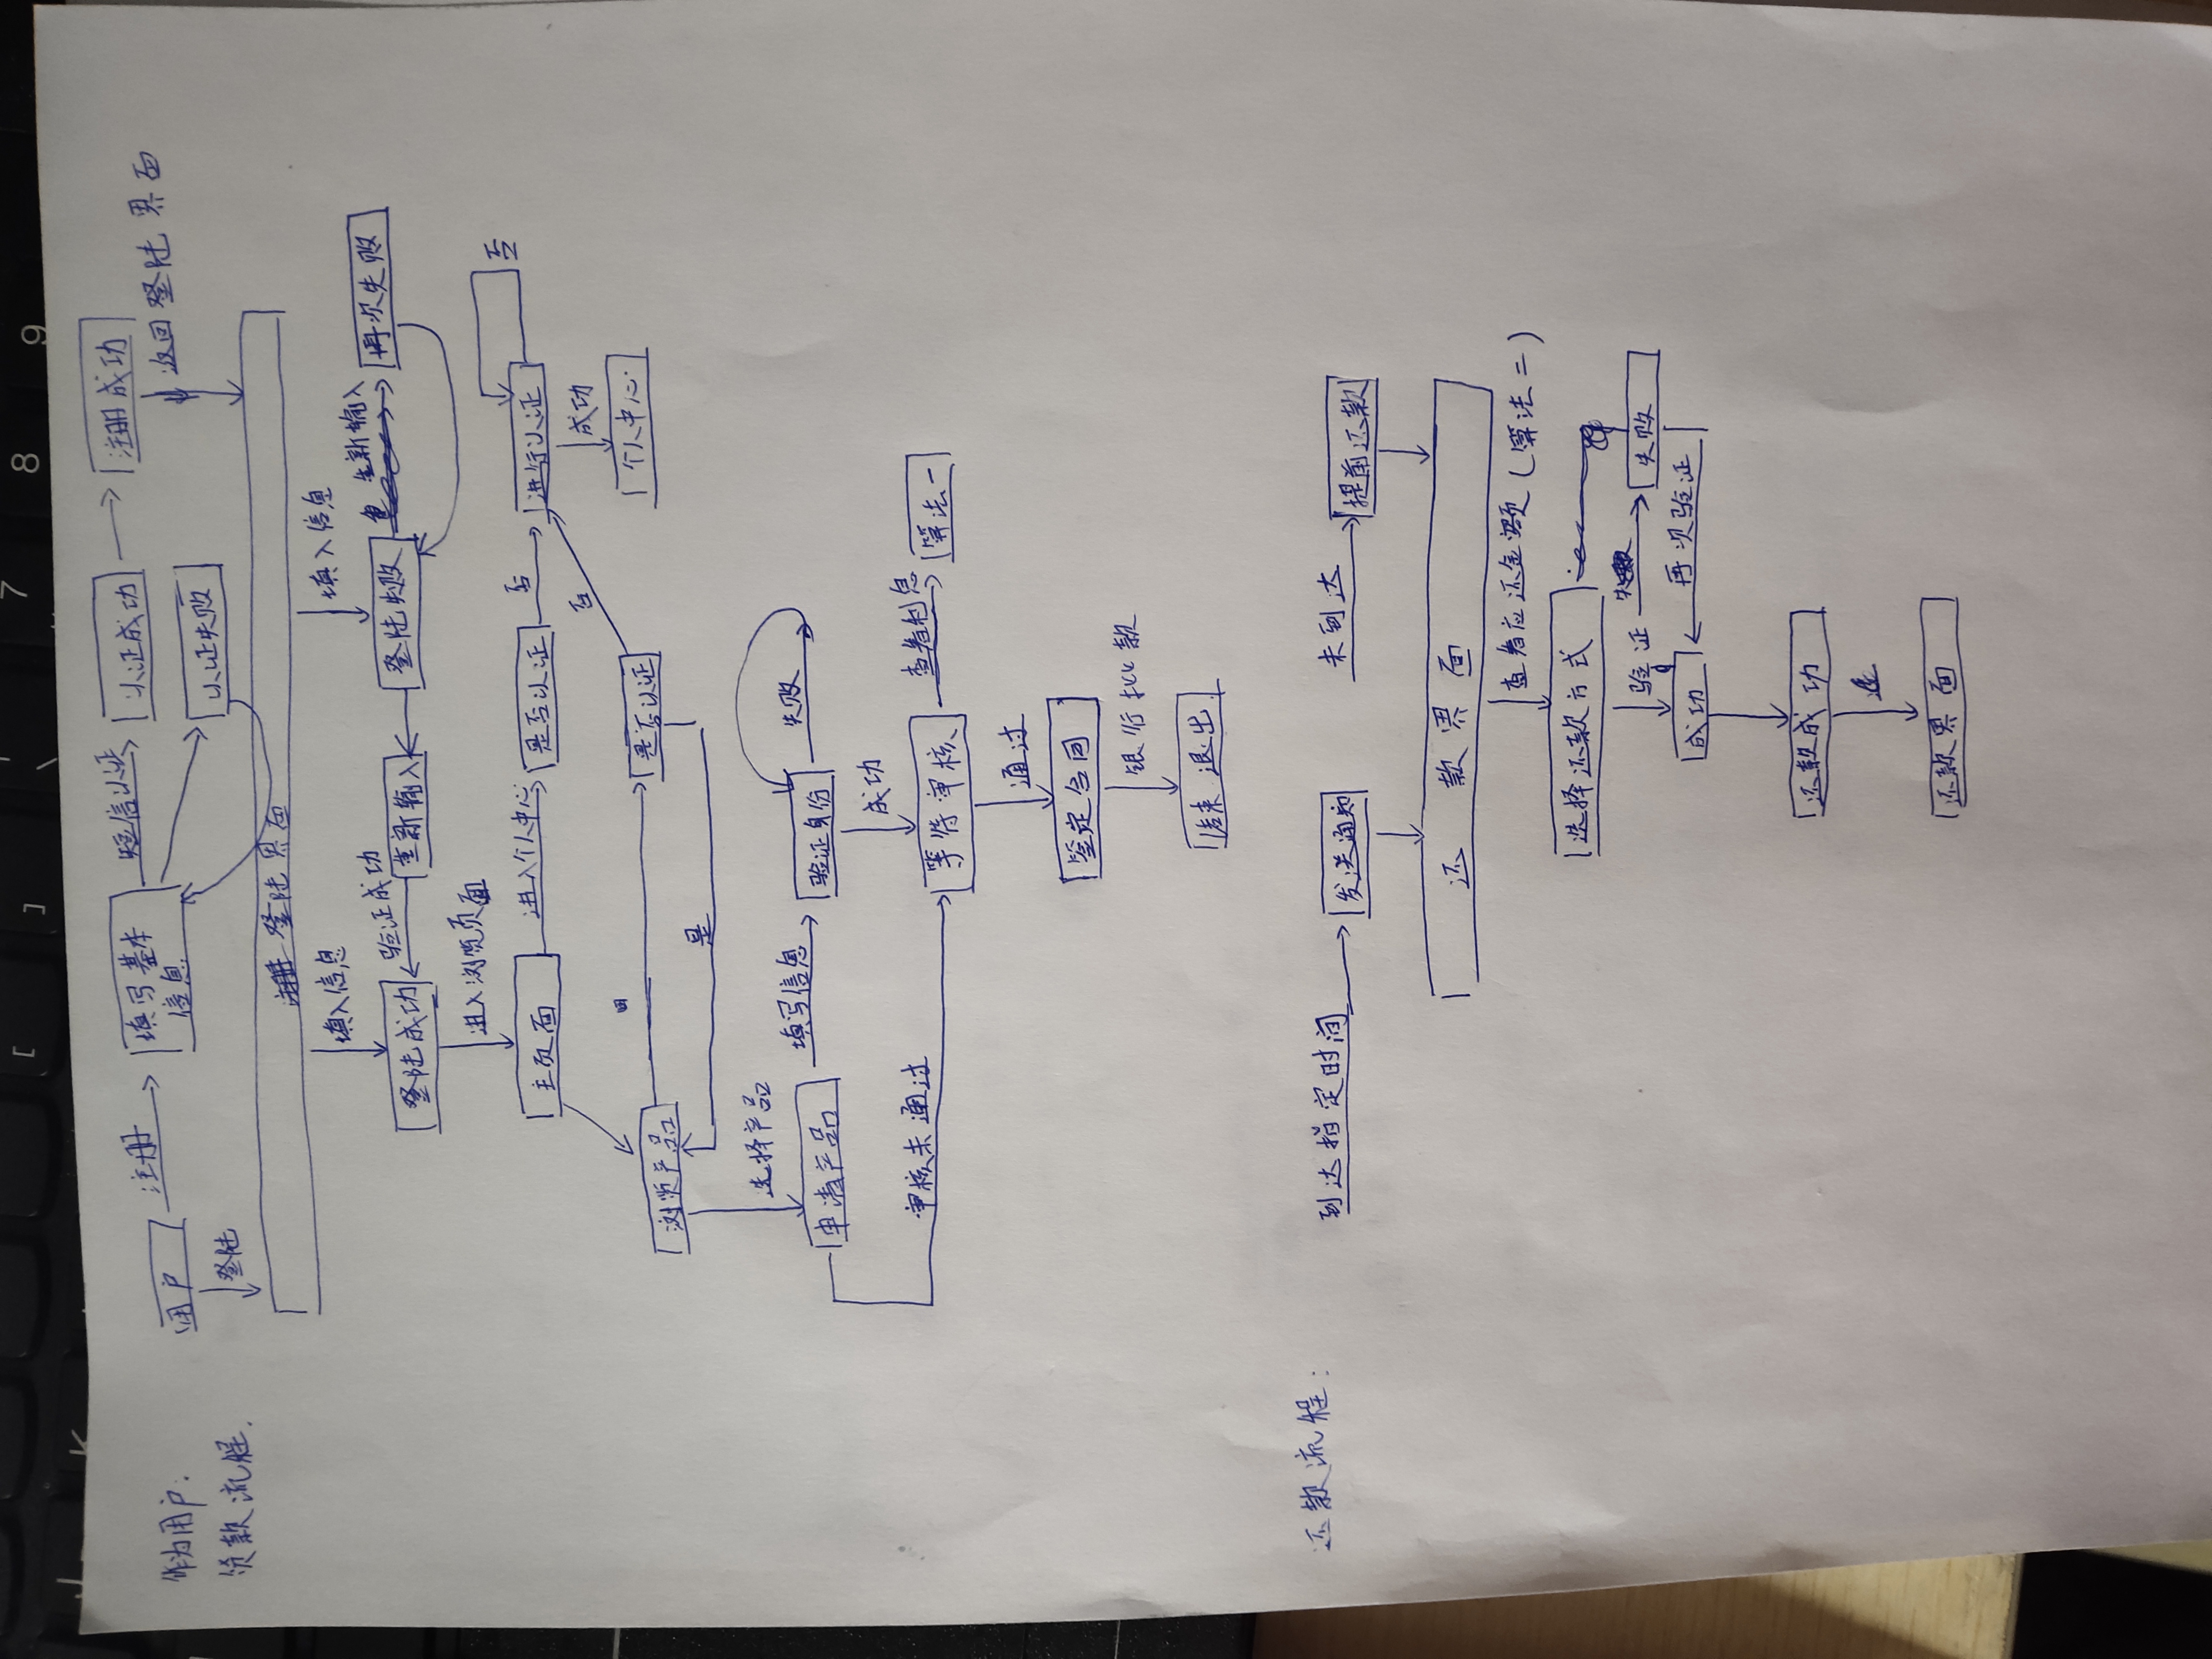 [
]
\
7
8
9
J
K
作为用户:
贷款流程.
用户
注册
填写基本
信息
短信认证
认证成功
注册成功
认证失败
返回登陆界面
登陆
登陆界面
填入信息
填入信息
登陆成功
验证成功
重新输入
登陆失败
重新输入
再次失败
进入浏览页面
主页面
进入个人中心
是否认证
否
进行认证
否
成功
个人中心.
否
浏览产品
是否认证
是
选择产品
申请产品
填写信息
验证身份
失败
成功
审核未通过
等待审核
查看利息
算法一
通过
签定合同
银行批款
结束 退出
还款流程:
到达指定时间
发送通知
未到达
提前还款
还款界面
查看应还金额(算法二)
选择还款方式
验证
失败
成功
再次验证
还款成功
还款界面